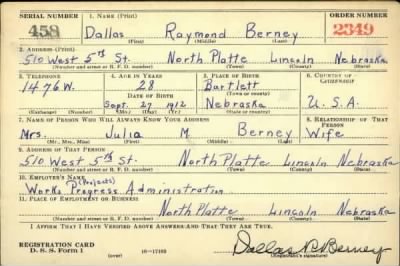 SERIAL NUMBER 1. NAME (Print) ORDER NUMBER
458 Dallas Raymond Berney 2349
(First) (Middle) (Last)
2. ADDRESS (Print)
510 West 5th St. North Platte Lincoln Nebraska
(Number and street or R. F. D. number) (Town) (County) (State)
3. TELEPHONE 4. AGE IN YEARS 5. PLACE OF BIRTH 6. COUNTRY OF CITIZENSHIP
1476W. 28 Bartlett
DATE OF BIRTH (Town or county)
Sept. 27 1912 Nebraska U.S.A.
(Mo.) (Day) (Yr.) (State or country)
7. NAME OF PERSON WHO WILL ALWAYS KNOW YOUR ADDRESS 8. RELATIONSHIP OF THAT PERSON
Mrs. Julia M. Berney Wife
(Mr., Mrs., Miss) (First) (Middle) (Last)
9. ADDRESS OF THAT PERSON
510 West 5th St. North Platte Lincoln Nebraska
(Number and street or R. F. D. number) (Town) (County) (State)
10. EMPLOYER'S NAME
(Projects)
Works Progress Administration
11. PLACE OF EMPLOYMENT OR BUSINESS
North Platte Lincoln Nebraska
(Number and street or R. F. D. number) (Town) (County) (State)
I AFFIRM THAT I HAVE VERIFIED ABOVE ANSWERS AND THAT THEY ARE TRUE.
REGISTRATION CARD
D. S. S. Form 1 (over) 16—17105 Dallas R. Berney
(Registrant's signature)